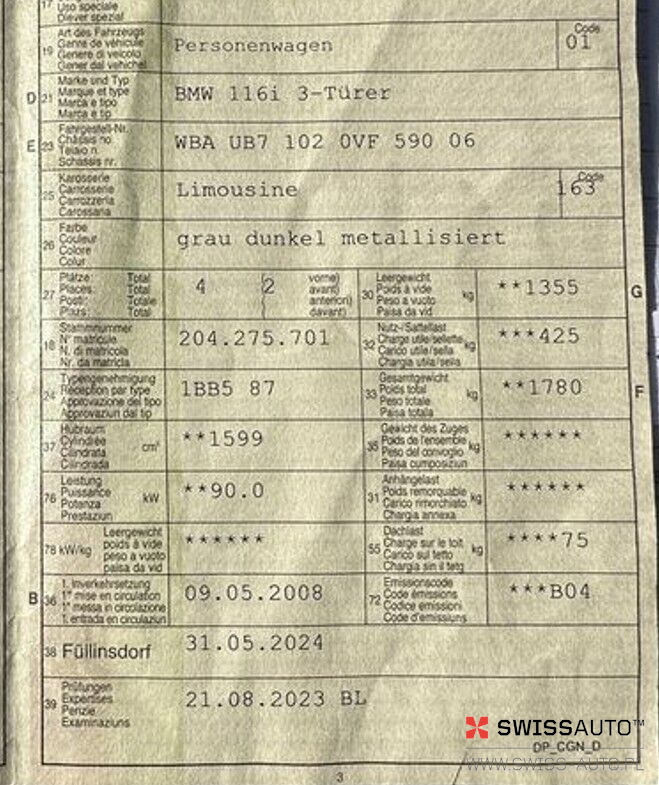 17
Uso speciale
Diever spezial
19 Art des Fahrzeugs
Genre de véhicule
Genere di veicolo
Gener dal vehichel
Personenwagen
Code
01
D 21 Marke und Typ
Marque et type
Marca e tipo
Marca e tip
BMW 116i 3-Türer
E 23 Fahrgestell-Nr.
Châssis no
Telaio n.
Schassis nr.
WBA UB7 102 0VF 590 06
25 Karosserie
Carrosserie
Carrozzeria
Carossaria
Limousine
Code
163
26 Farbe
Couleur
Colore
Colur
grau dunkel metallisiert
27 Plätze: Total
Places: Total
Posti: Totale
Plazs: Total
4 2
vorne)
avant)
anteriori)
davant)
30 Leergewicht
Poids à vide
Peso a vuoto
Paisa da vid
kg
**1355 G
18 Stammnummer
N° matricule
N. di matricola
Nr. da matricla
204.275.701
32 Nutz-/Sattellast
Charge utile/sellette
Carico utile/sella
Chargia utila/sella
kg
***425
24 Typengenehmigung
Réception par type
Approvazione del tipo
Approvaziun dal tip
1BB5 87
33 Gesamtgewicht
Poids total
Peso totale
Paisa totala
kg
**1780 F
37 Hubraum
Cylindrée
Cilindrata
Cilindrada
cm³
**1599
35 Gewicht des Zuges
Poids de l'ensemble
Peso del convoglio
Paisa cumposiziun
kg
******
76 Leistung
Puissance
Potenza
Prestaziun
kW
**90.0
31 Anhängelast
Poids remorquable
Carico rimorchiato
Chargia annexa
kg
******
78 kW/kg
Leergewicht
poids à vide
peso a vuoto
paisa da vid
******
55 Dachlast
Charge sur le toit
Carico sul tetto
Chargia sin il tetg
kg
****75
B 36 1. Inverkehrsetzung
1re mise en circulation
1a messa in circolazione
1. entrada en circulaziun
09.05.2008
72 Emissionscode
Code émissions
Codice emissioni
Code d'emissiuns
***B04
38 Füllinsdorf
31.05.2024
39 Prüfungen
Expertises
Perizie
Examinaziuns
21.08.2023 BL
SWISSAUTO™
DP_CGN_D
WWW.SWISS-AUTO.PL
3